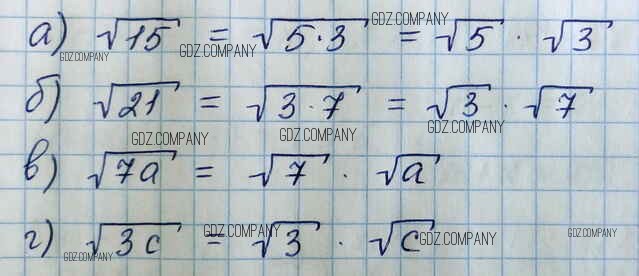 а) √15 = √5·3 = √5 · √3
б) √21 = √3·7 = √3 · √7
в) √7a = √7 · √a
г) √3c = √3 · √c
GDZ.COMPANY
GDZ.COMPANY
GDZ.COMPANY
GDZ.COMPANY
GDZ.COMPANY
GDZ.COMPANY
GDZ.COMPANY
GDZ.COMPANY
GDZ.COMPANY
GDZ.COMPANY